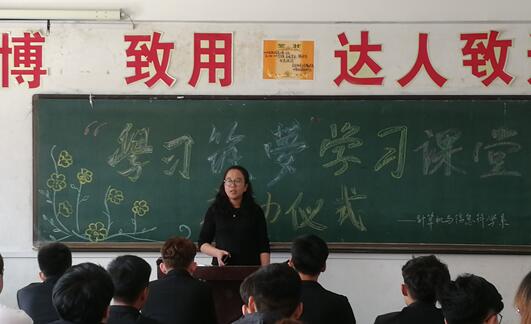 博 致用 达人致
“学习筑梦学习课堂
动仪式
——计算机与信息科学系